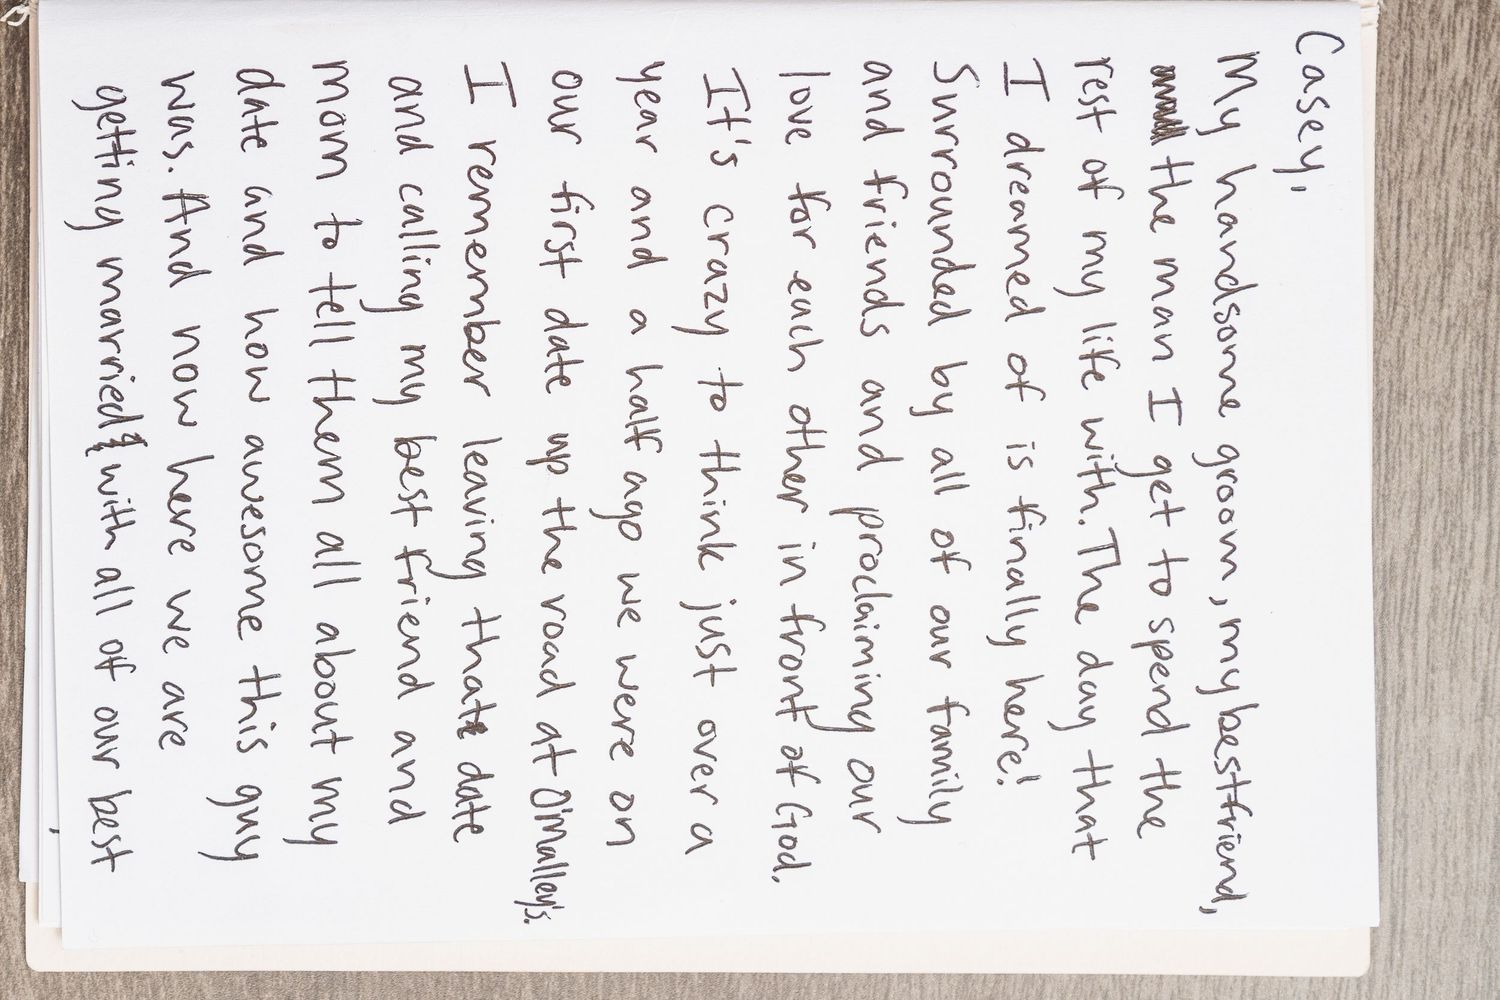 Casey,
My handsome groom, my bestfriend,
the man I get to spend the
rest of my life with. The day that
I dreamed of is finally here!
Surrounded by all of our family
and friends and proclaiming our
love for each other in front of God.
It's crazy to think just over a
year and a half ago we were on
our first date up the road at O'Malley's.
I remember leaving that date
and calling my best friend and
mom to tell them all about my
date and how awesome this guy
was. And now here we are
getting married with all of our best